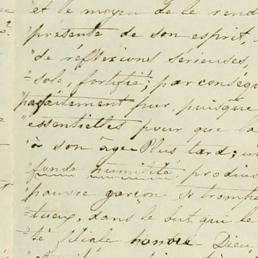 et le moyen de le rend
présente de son esprit,
de réflexions sérieuses,
sole, fortifié; par conséq
parfaitement pur, puisque
essentielles pour que la
à son âge. Plus tard; u
funde humilité produi
pauvre garçon se trompe
lueur, dans le but qui le
té filiale honore Dieu,